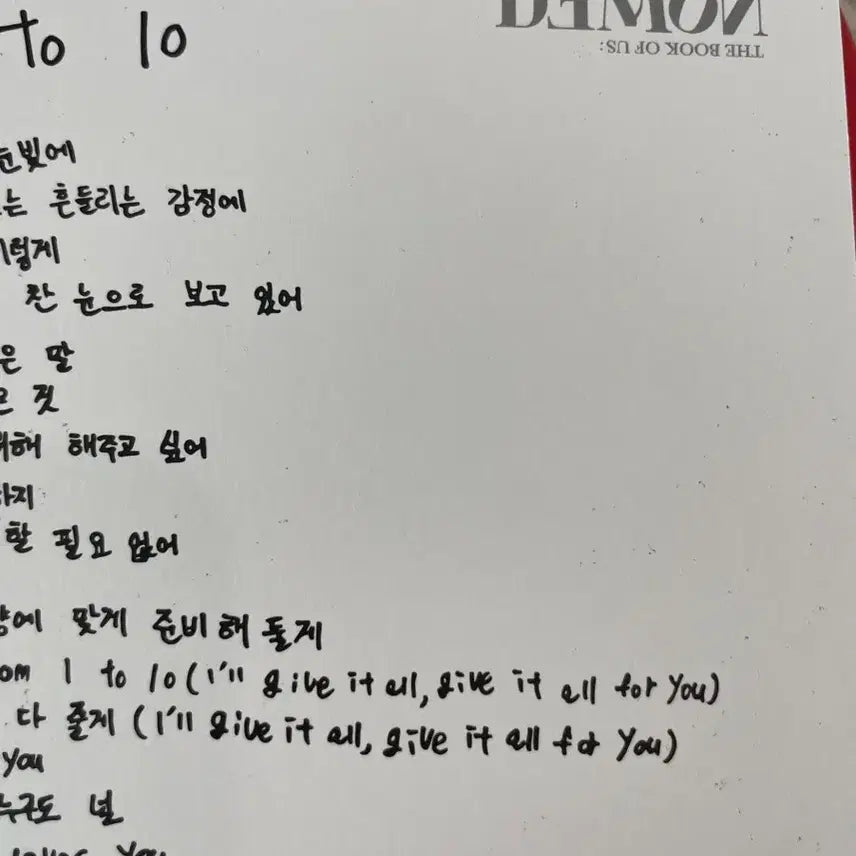 THE BOOK OF US:
DEMON
to 10
눈빛에
는 흔들리는 감정에
이렇게
찬 눈으로 보고 있어
은 말
것
위해 해주고 싶어
하지
할 필요 없어
향에 맞게 준비해 둘게
om 1 to 10 (I'll give it all, give it all for you)
다 줄게 (I'll give it all, give it all for you)
you
누구도 널
loves you